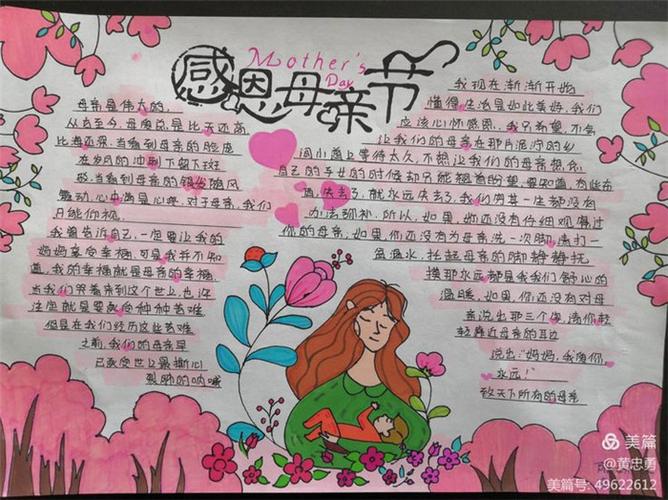 Mother's
Day
感恩母亲节
母亲是伟大的，
从古至今，母爱总是比天还高，
比海还深，当看到母亲的脸庞
在岁月的冲刷下留下斑
驳，当看到母亲的银发随风
飘动，心中满是心疼，对于母亲，我们
只能仰视，
我曾告诉自己，一定要让我的
妈妈享受幸福，可是我并不知
道，我的幸福就是母亲的幸福，
当我们哭着来到这个世上，也许
注定就是要受种种苦难，
但是在我们经历这些苦难
之前，我们的母亲早
已承受世上最撕心
裂肺的呐喊
我现在渐渐开始
懂得，生活是如此美好，我们
应该心怀感恩，我只希望，不会
让我们的母亲在那片泥泞的乡
间小道上等待太久，不想让我们的母亲想念
自己的子女的时候却只能翘首盼望，要知道，有些东
西，失去了，就永远失去了，我们用其一生都没有
办法弥补，所以，如果，你还没有仔细观看过
你的母亲，如果，你还没有为母亲洗一次脚，请打一
盆温水，托起母亲的脚，静静抚
摸那永远都是我们舒心的
温暖，如果，你还没有对母
亲说出那三个字，请你轻
轻靠近母亲的耳边
说出："妈妈，我爱你，
永远！"
致天下所有的母亲
美篇
@黄忠勇
美篇号：49622612